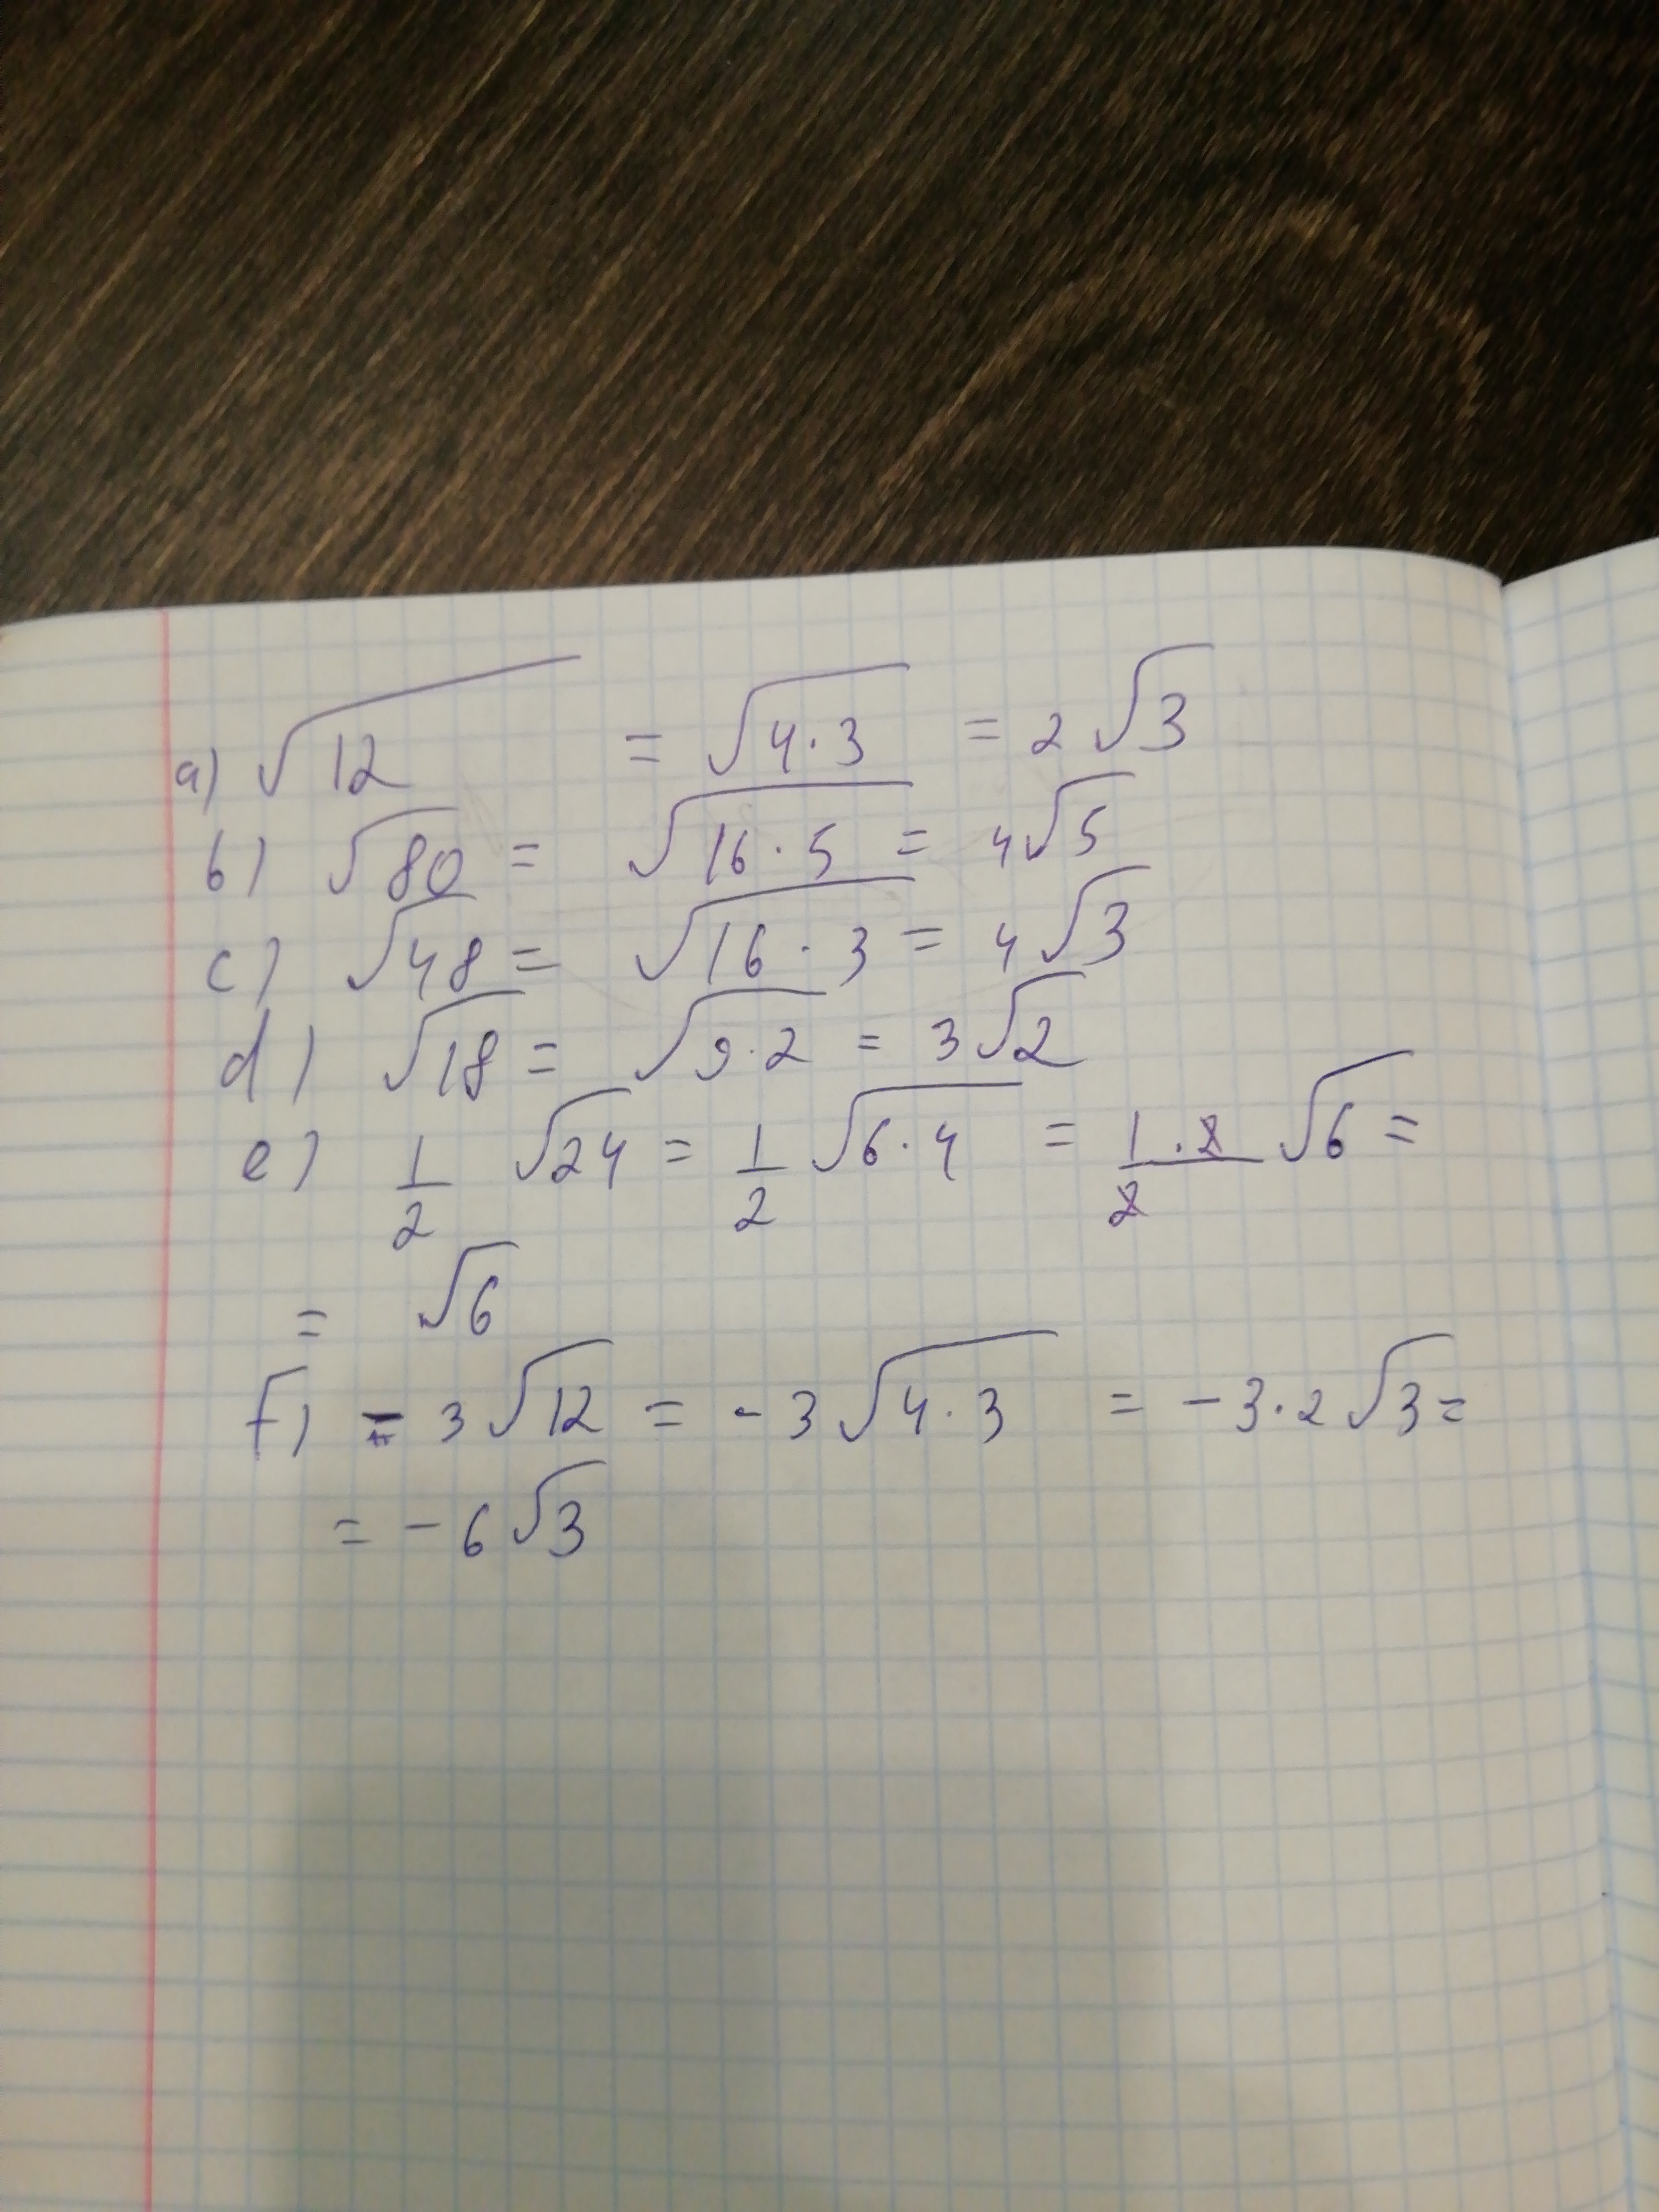 a) √12 = √4·3 = 2√3
b) √80 = √16·5 = 4√5
c) √48 = √16·3 = 4√3
d) √18 = √9·2 = 3√2
e) 1/2 √24 = 1/2 √6·4 = 1·2/2 √6 =
= √6
f) -3√12 = -3√4·3 = -3·2√3=
= -6√3